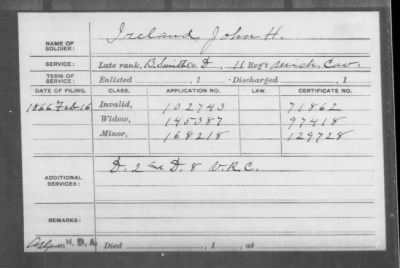 NAME OF SOLDIER: Ireland, John H.
SERVICE: Late rank, B.Smith Co. D, 11 Reg't Mich. Cav.
TERM OF SERVICE: Enlisted , 1 Discharged , 1
DATE OF FILING. CLASS. APPLICATION NO. LAW. CERTIFICATE NO.
1866 Feb. 16 Invalid, 102743 71862
Widow, 145387 97418
Minor, 168218 129728
ADDITIONAL SERVICES: D. 2 and D. 8 V.R.C.
REMARKS:
N. D. A. Died , 1 , at